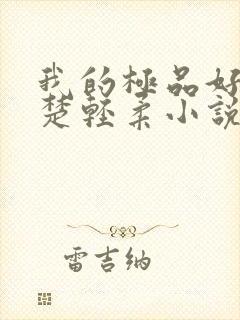 我的極品好
楚輕柔小說
雷吉納